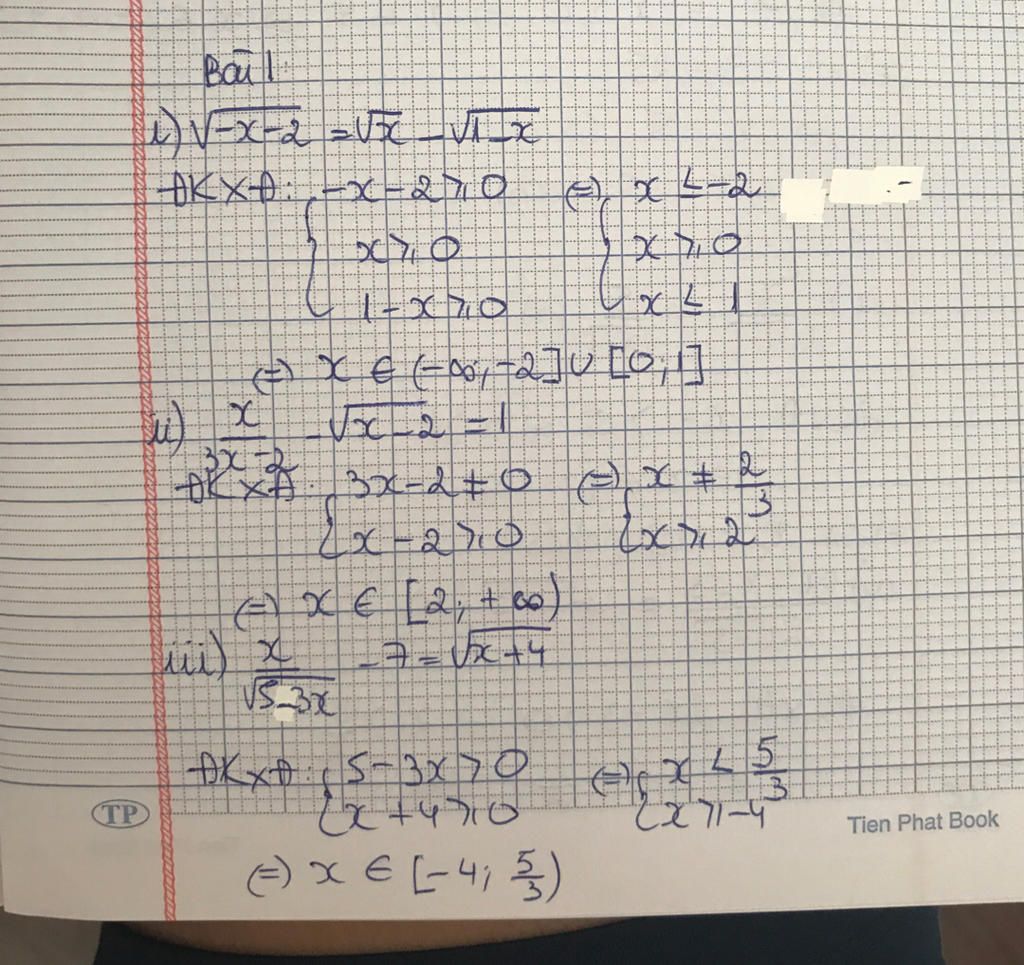 Bài 1:
i) √(-x-2) = √x - √(1-x)
ĐKXĐ: { -x-2 ⩾ 0 ; x ⩾ 0 ; 1-x ⩾ 0 (=) { x ≤ -2 ; x ⩾ 0 ; x ≤ 1
(=) x ∈ (-∞; -2] ∪ [0; 1]
ii) x/(3x-2) - √(x-2) = 1
ĐKXĐ: { 3x-2 ≠ 0 ; x-2 ⩾ 0 (=) { x ≠ 2/3 ; x ⩾ 2
(=) x ∈ [2; +∞)
iii) x/√(5-3x) - 7 = √(x+4)
ĐKXĐ: { 5-3x > 0 ; x+4 ⩾ 0 (=) { x < 5/3 ; x ⩾ -4
TP
Tien Phat Book
(=) x ∈ [-4; 5/3)